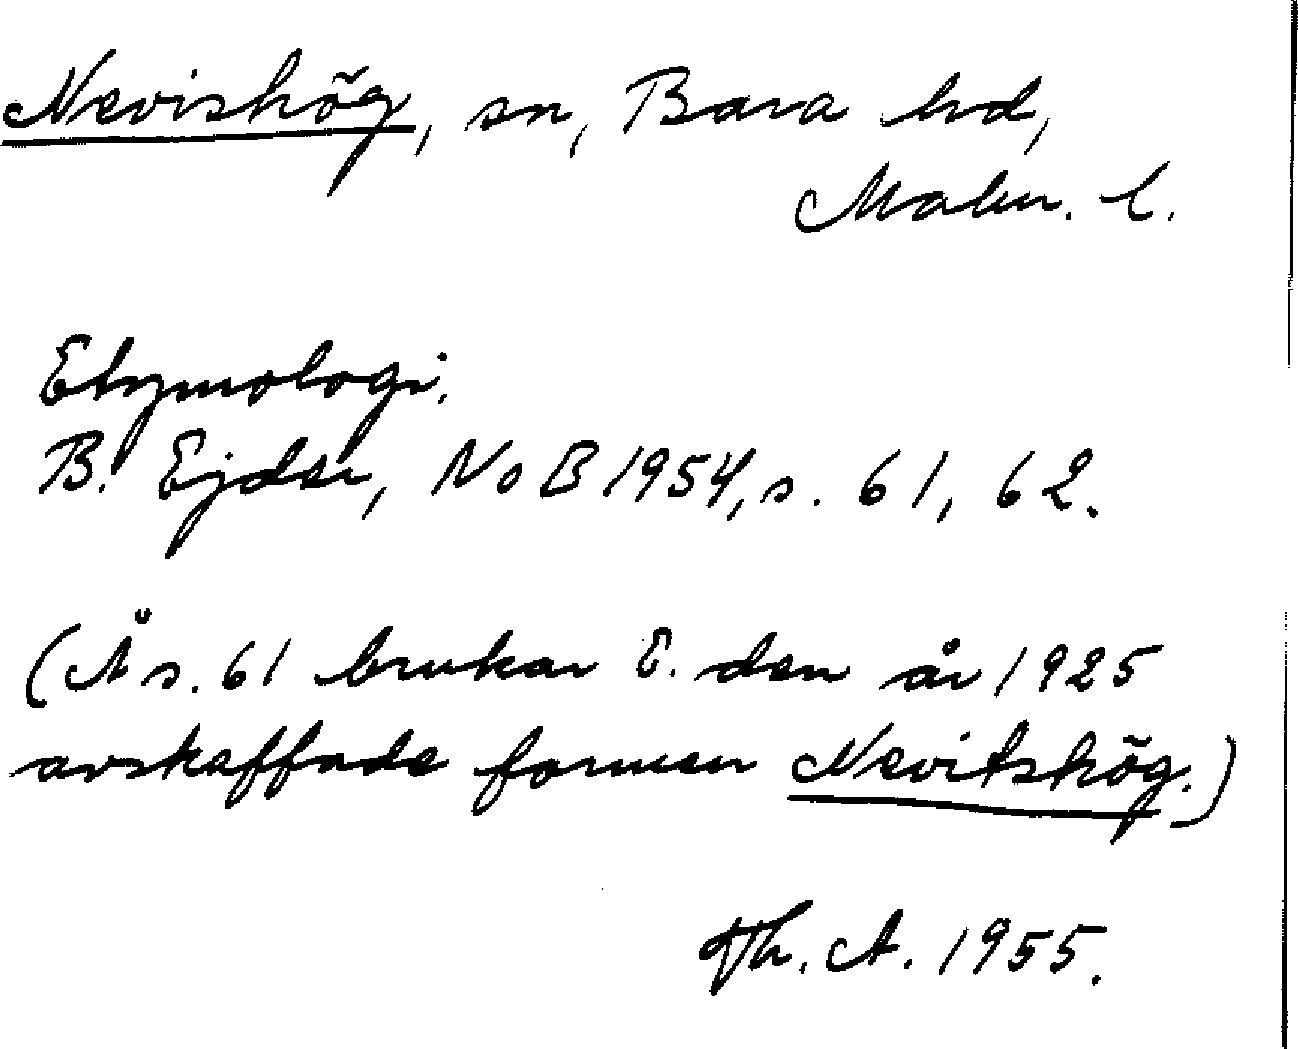 Nevishög, sn, Bara hd,
Malm. l.
Etymologi.
B. Ejder, NoB 1954, s. 61, 62.
(Å s. 61 brukar E. den år 1925
avskaffade formen Nevitshög.)
Th. A. 1955.